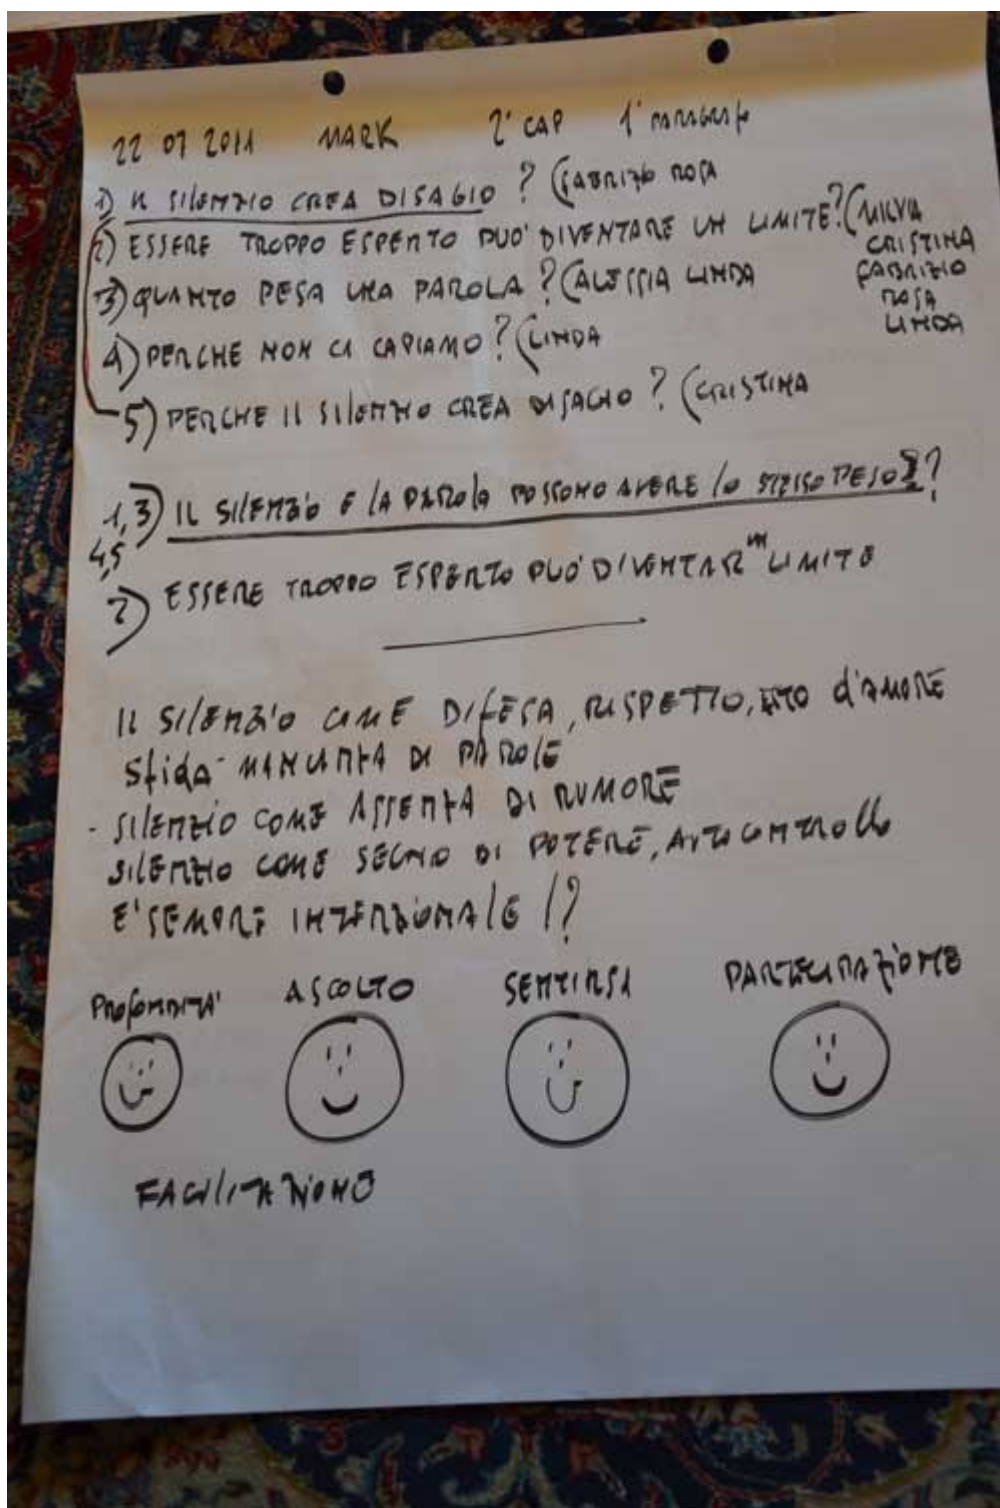 22 07 2011 MARK 2° CAP 1° PARAGRAFO
1) IL SILENZIO CREA DISAGIO ? (FABRIZIO ROSA
2) ESSERE TROPPO ESPERTO PUO' DIVENTARE UN LIMITE? (MILVIA
CRISTINA
FABRIZIO
ROSA
LINDA
3) QUANTO PESA UNA PAROLA ? (ALESSIA LINDA
4) PERCHE NON CI CAPIAMO ? (LINDA
5) PERCHE IL SILENZIO CREA DISAGIO ? (CRISTINA
1,3) IL SILENZIO E LA PAROLA POSSONO AVERE LO STESSO PESO ?
4,5
2) ESSERE TROPPO ESPERTO PUO' DIVENTAR un LIMITE
IL SILENZIO COME DIFESA, RISPETTO, ATTO d'AMORE
Sfida - MANCANZA DI PAROLE
- SILENZIO COME ASSENZA DI RUMORE
SILENZIO COME SEGNO DI POTERE, AUTOCONTROLLO
E' SEMPRE INTENZIONALE !?
PROFONDITA' ASCOLTO SENTIRSI PARTECIPAZIONE
FACILITAZIONE